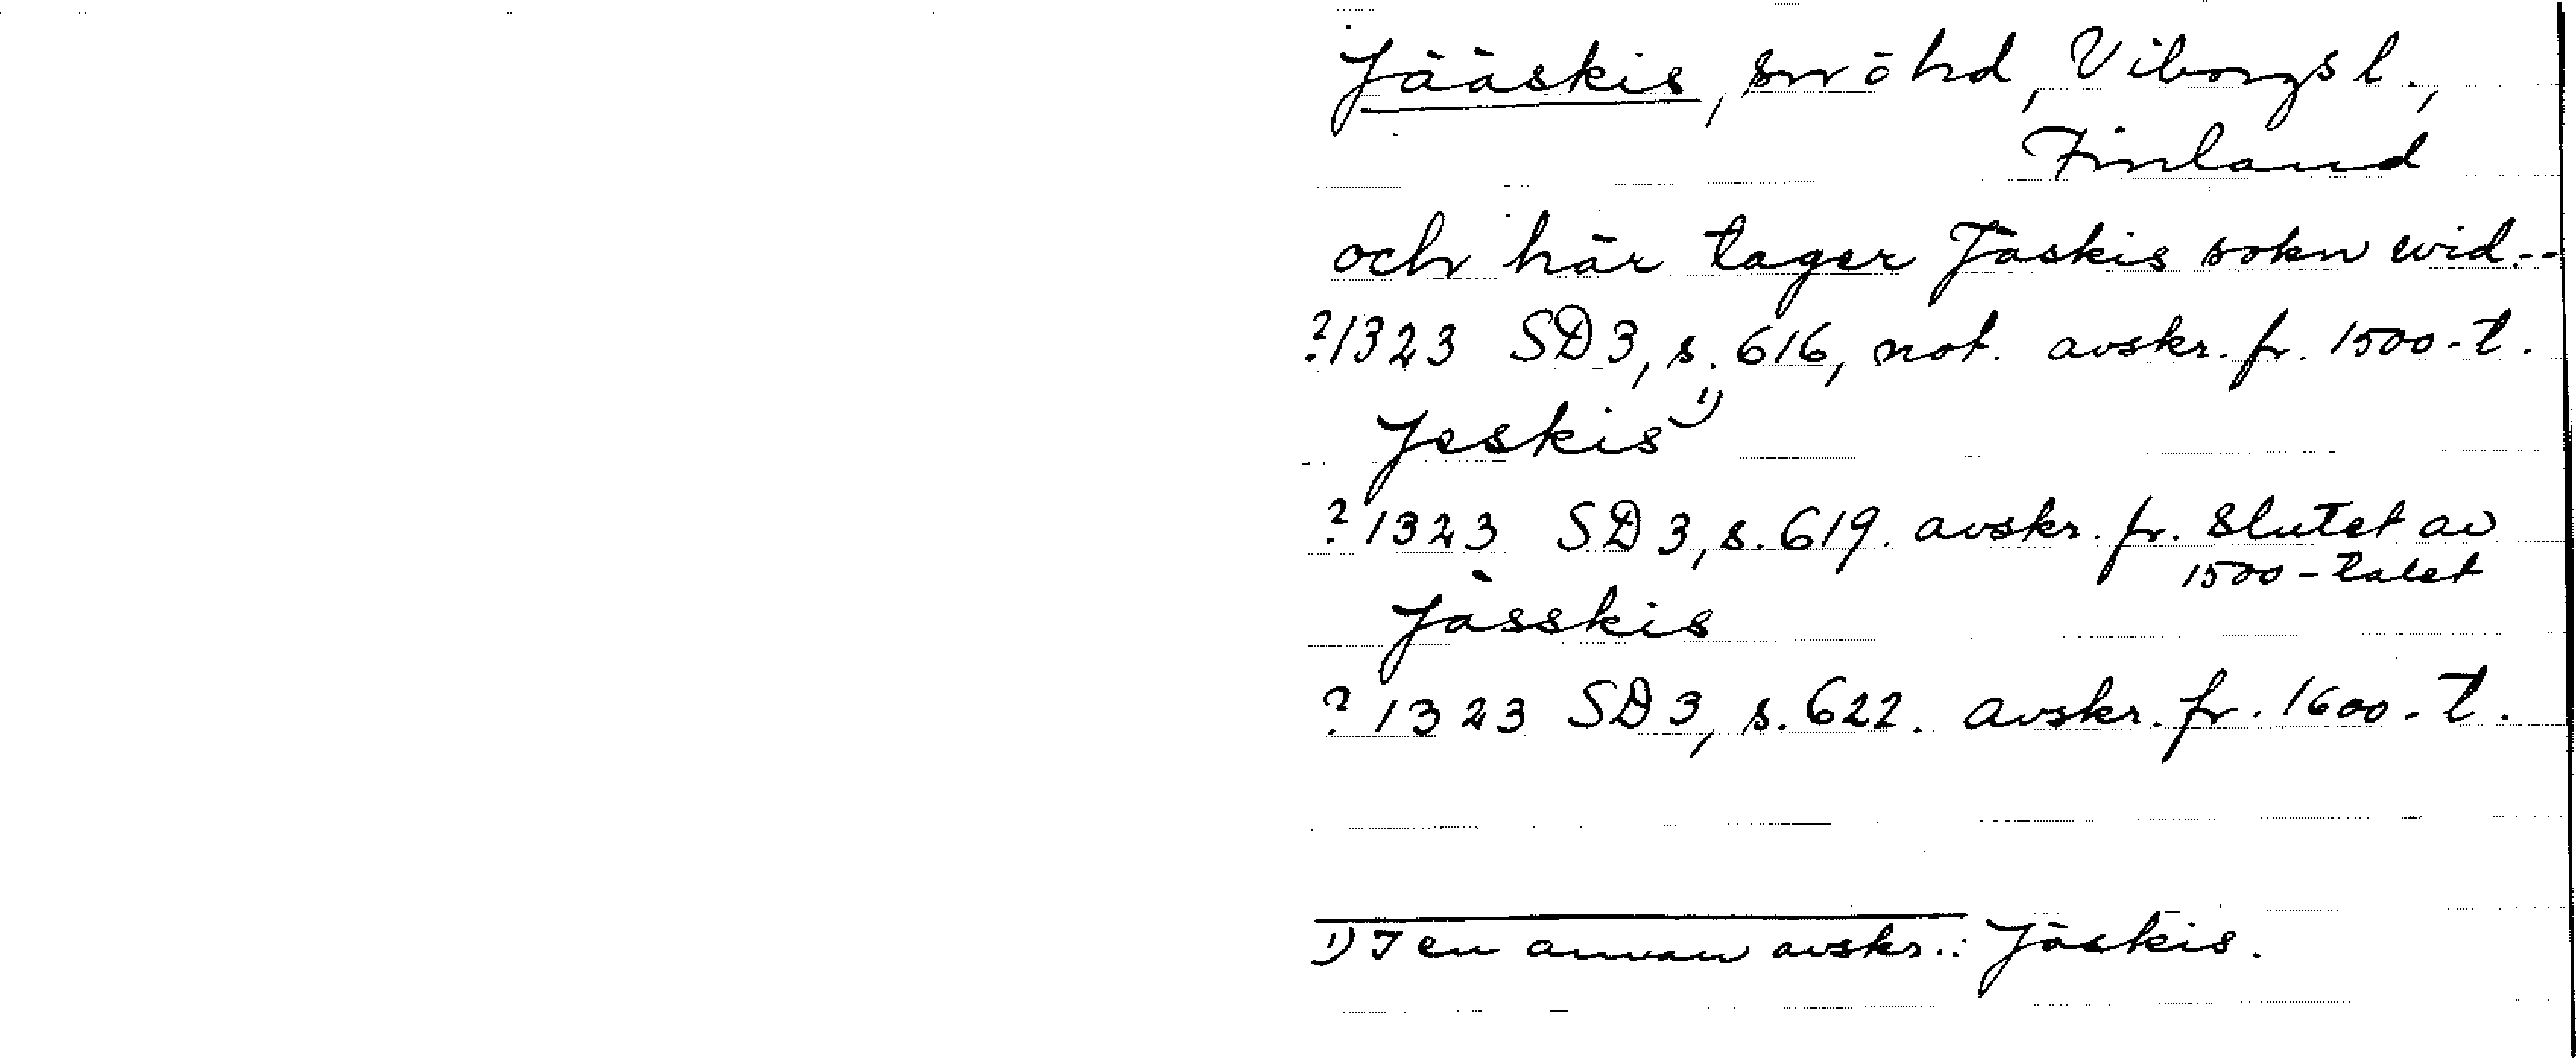 Jääskis, sn o hd, Viborgs l.,
Finland
och här tager Jäskis sokn wid--
?1323 SD3, s. 616, not. avskr. fr. 1500-t.
Jeskis 1)
?1323 SD3, s. 619. avskr. fr. slutet av
1500-talet
Jässkis
?1323 SD3, s. 622. avskr. fr. 1600-t.
1) I en annan avskr.: Jäskis.